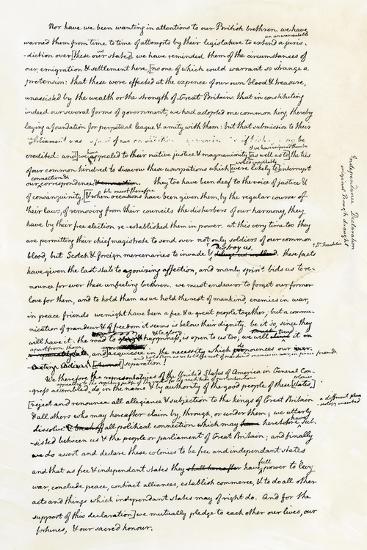 Nor have we been wanting in attentions to our British brethren. we have
warned them from time to time of attempts by their legislature to extend
diction over [these our states]. we have reminded them of the circumstances of
our emigration & settlement here [no one of which could warrant so strange a
pretension: that these were effected at the expence of our own blood & treasure,
unassisted by the wealth or the strength of Great Britain: that in constituting
indeed our several forms of government, we had adopted one common king, thereby
laying a foundation for perpetual league & amity with them: but that submission to their
credited: and] we appealed to their native justice & magnanimity [as well as to] the ties
of our common kindred to disavow these usurpations which [were likely to] interrupt
our correspondence
connection &
they too have been deaf to the voice of justice &
of consanguinity. [& when occasions have been given them, by the regular course of
their laws, of removing from their councils the disturbers of our harmony, they
have by their free election re-established them in power. at this very time too they
are permitting their chief magistrate to send over not only soldiers of our common
blood, but Scotch & foreign mercenaries to invade &
destroy us
these facts
have given the last stab to agonizing affection, and manly spirit bids us to re-
nounce for ever these unfeeling brethren. we must endeavor to forget our former
love for them, and to hold them as we hold the rest of mankind, enemies in war,
in peace friends. we might have been a free & a great people together; but a commu-
nication of grandeur & of freedom it seems is below their dignity. be it so, since they
will have it: the road to happiness is open to us too; we will
and] acquiesce in the necessity which
our
We therefore the representatives of the United States of America in General Con-
gress assembled do in the name & by authority of the good people of these [states]
[reject and renounce all allegiance & subjection to the kings of Great Britain
& all others who may hereafter claim by, through, or under them; we utterly
dissolve all political connection which may
heretofore sub-
sisted between us & the people or parliament of Great Britain; and finally
we do assert and declare these colonies to be free and independant states
and that as free & independant states they
have full power to levy
war, conclude peace, contract alliances, establish commerce, & to do all other
acts and things which independant states may of right do. And for the
support of this declaration] we mutually pledge to each other our lives, our
fortunes, & our sacred honour.
Independence Declaration
original Rough draught